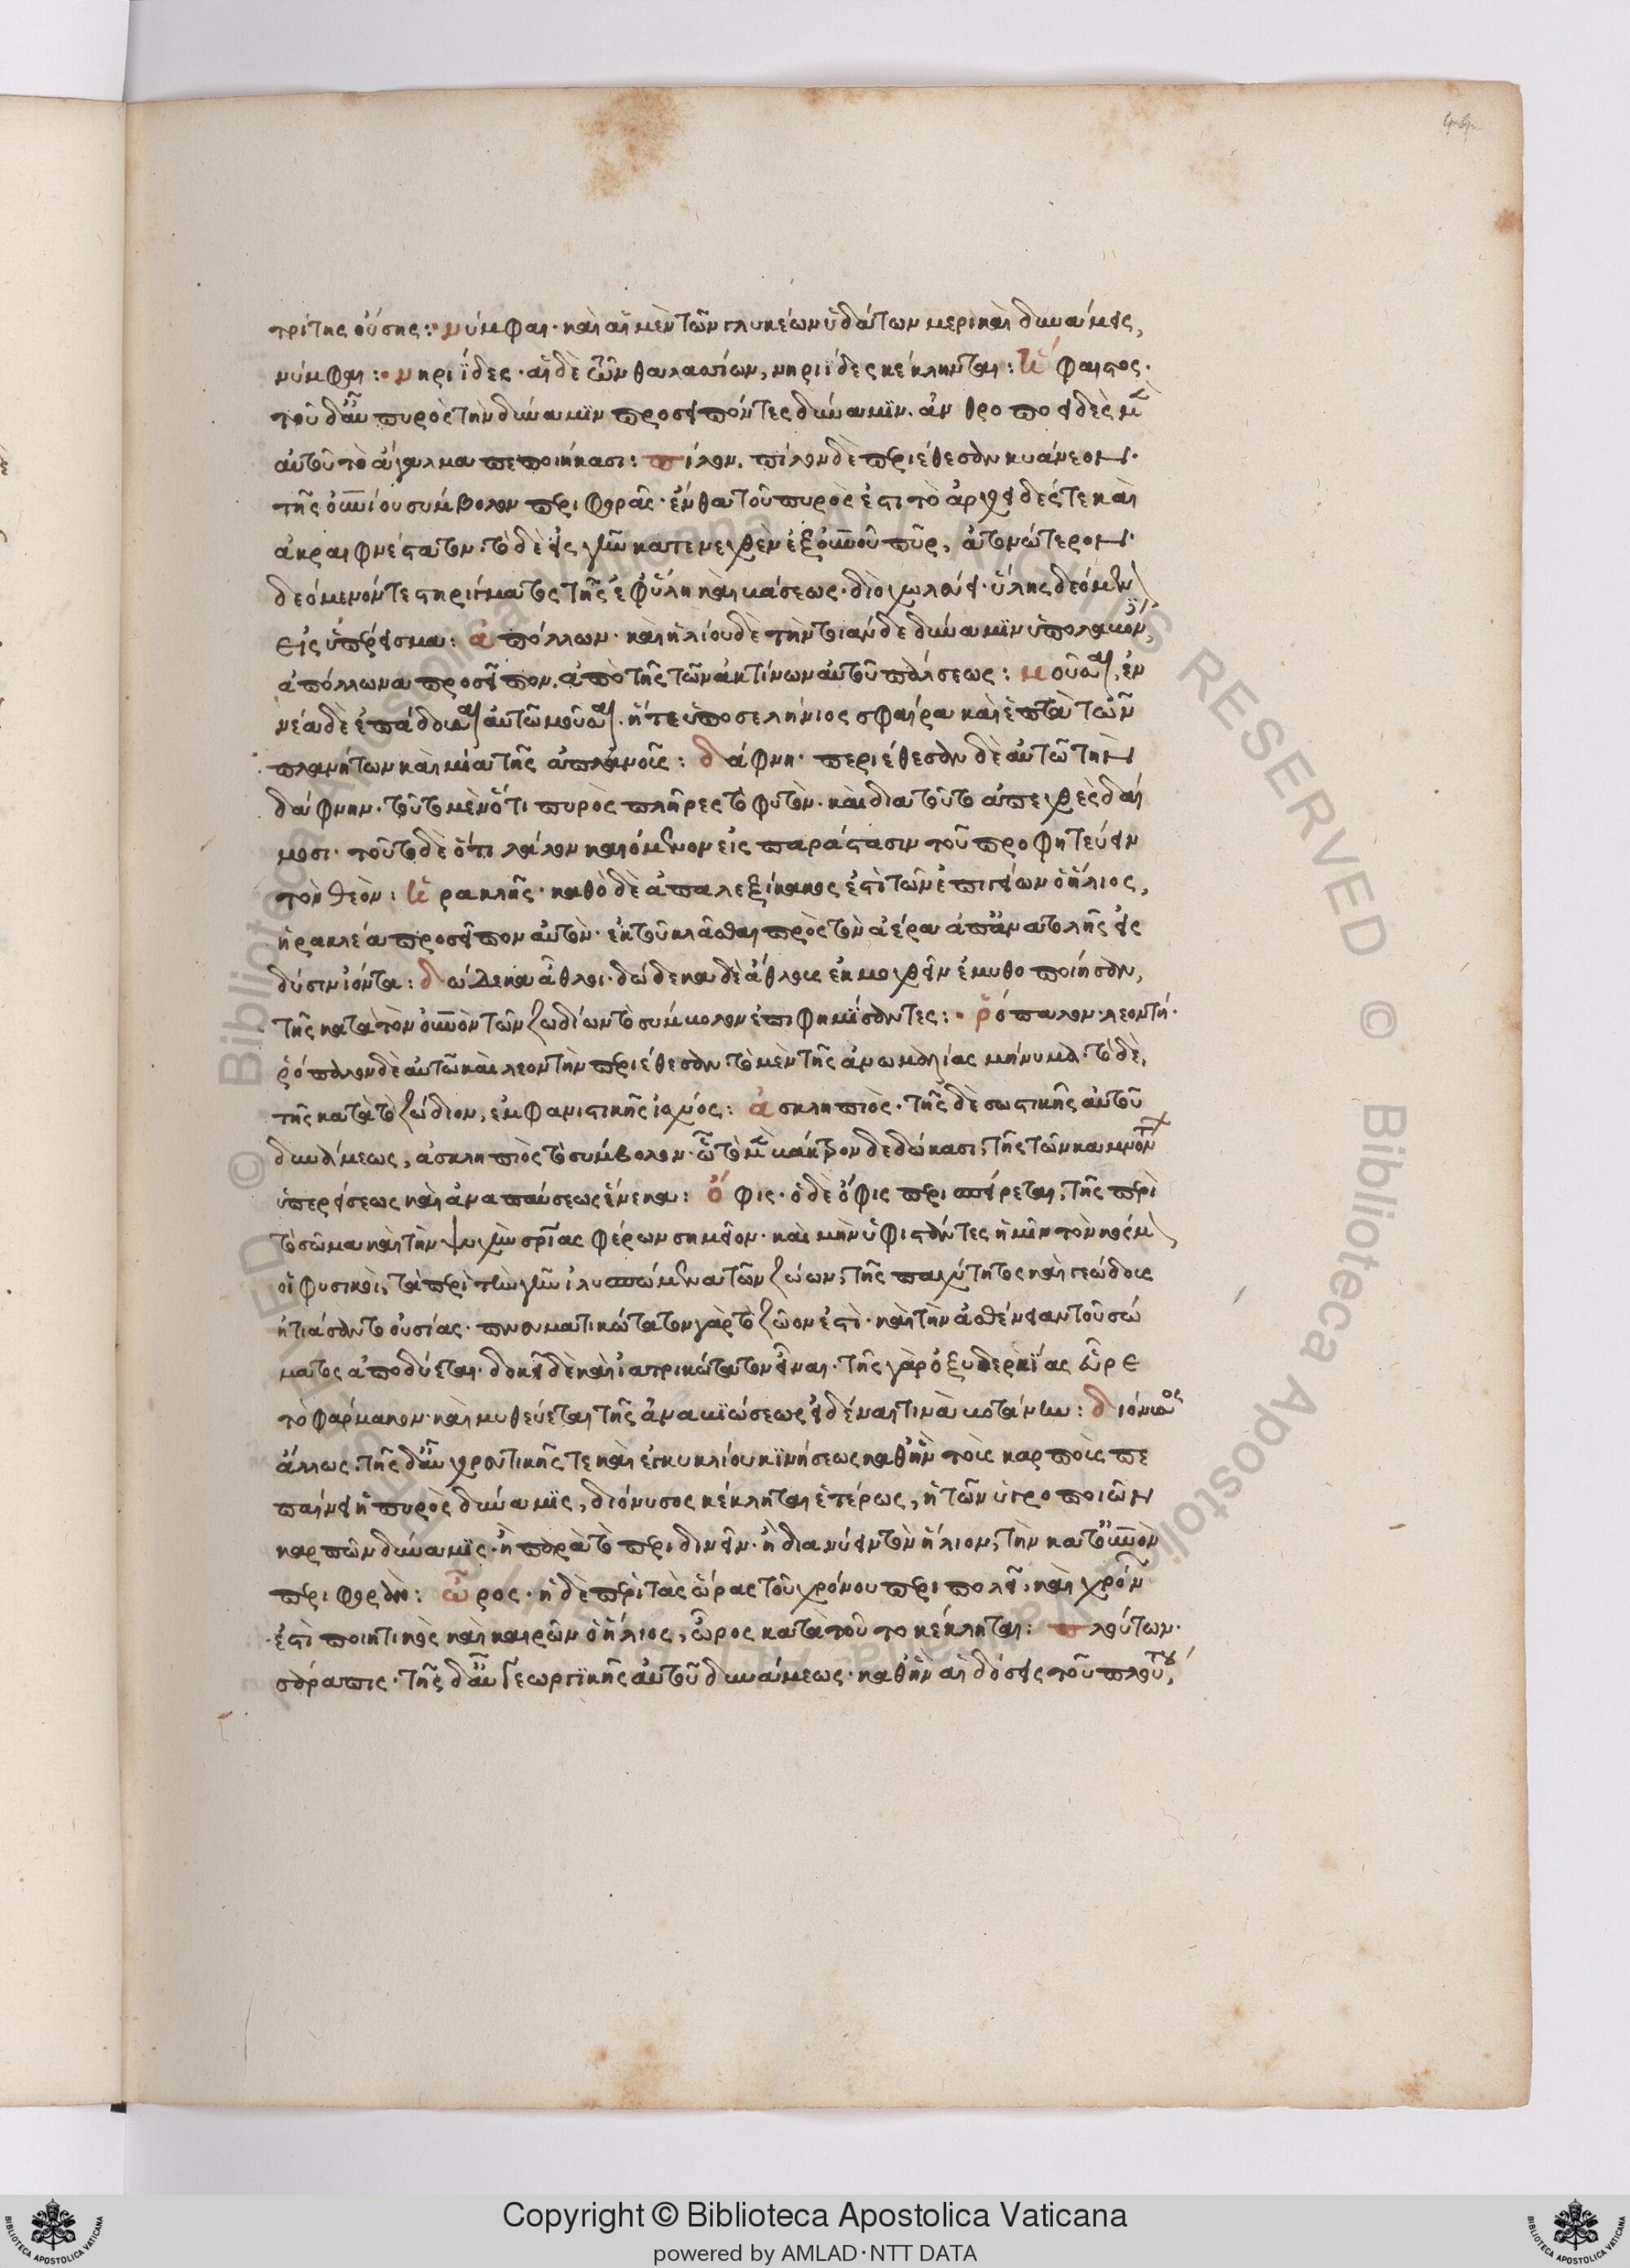 44
τρίτης οὔσης: νύμφαι· καὶ αἱ μὲν τῶν γλυκέων ὑδάτων μερικαὶ δυνάμεις,
νύμφαι: νηριΐδες· αἱ δὲ τῶν θαλασσίων, νηριΐδες κέκληνται: ἥφαιστος·
τοῦ δ' αὖ πυρὸς τὴν δύναμιν προσειπόντες δύναμιν. ἀνθροποειδὲς μὲν
αὐτοῦ τὸ ἄγαλμα πεποιήκασι: πίλον. πίλον δὲ περιέθεσαν κυάνεον·
τῆς οὐνίου σύμβολον περιφορᾶς· ἔνθα τοῦ πυρός ἐστι τὸ ἀρχειδές τε καὶ
ἀκραιφνέστατον. τὸ δὲ εἰς γῆν κατενεχθὲν ἐξ οὐνοῦ πῦρ, ἀτονώτερον·
δεόμενόν τε στηρίγματος τῆς ἐφ' ὕλη καὶ βάσεως· διὸ χωλεύει· ὕλης δεόμενον
εἰς ὑπέρεισμα: ἀπόλλων· καὶ ἡλίου δὲ τὴν τοιάνδε δύναμιν ὑπολαβόντες,
ἀπόλλωνα προσεῖπον. ἀπὸ τῆς τῶν ἀκτίνων αὐτοῦ πάλσεως: μοῦσαι. ἐν
νέα δὲ ἐπάδουσαι αὐτῶ μοῦσαι. ἥ τε ὑποσελήνιος σφαῖρα καὶ ἑπτὰ τῶν
πλανήτων καὶ μία τῆς ἀπλανοῖς: δάφνη· περιέθεσαν δὲ αὐτῶ τὴν
δάφνην· τοῦτο μὲν ὅτι πυρὸς πλῆρες τὸ φυτόν. καὶ διὰ τοῦτο ἀπειχθὲς δαί
μοσι· τοῦτο δὲ ὅτι λάλον καιόμενον εἰς παράστασιν τοῦ προφητεύειν
τὸν θεόν: ἡρακλῆς· καθὸ δὲ ἀπαλεξίκακος ἐστὶ τῶν ἐπιγείων ὁ ἥλιος,
ἡρακλέα προσεῖπον αὐτὸν· ἐκ τοῦ κλᾶσθαι πρὸς τὸν ἀέρα ἀπ' ἀνατολῆς εἰς
δύσιν ἰόντα: δώδεκα ἆθλοι· δώδεκα δὲ ἄθλους ἐκμοχθεῖν ἐμυθοποίησαν,
τῆς κατὰ τὸν οὐνὸν τῶν ζωδίων τὸ σύμβολον ἐπιφημίσαντες: ῥόπαλον· λεοντή·
ῥόπαλον δὲ αὐτῶ καὶ λεοντὴν περιέθεσαν· τὸ μὲν τῆς ἀνωμαλίας μήνυμα· τὸ δὲ,
τῆς κατὰ τὸ ζώδιον, ἐμφανιστικῆς ἰσχύος: ἀσκληπιὸς· τῆς δὲ σωστικῆς αὐτοῦ
δυνάμεως, ἀσκληπιὸς τὸ σύμβολον· ὧ τὸ μὲν βάκτρον δεδώκασι, τῆς τῶν καμνόντων
ὑπερείσεως καὶ ἀναπαύσεως ἕνεκα: ὄφις· ὁ δὲ ὄφις περισπείρεται, τῆς περὶ
τὸ σῶμα καὶ τὴν ψυχὴν σρίας φέρων σημεῖον·
οἱ φυσικοὶ, τὰ περὶ τὴν γῆν ἰλυσπώμενα τῶν ζώων, τῆς παχύτητος καὶ γεώδους
ἠτιάσαντο οὐσίας· πνευματικώτατον γὰρ τὸ ζῶον ἐστὶ· καὶ τὴν ἀσθένειαν τοῦ σώ
ματος ἀποδύεται. δοκεῖ δὲ καὶ ἰατρικώτατον εἶναι· τῆς γὰρ ὀξυδερκίας εὗρε
τὸ φάρμακον· καὶ μυθεύεται τῆς ἀναβιώσεως εἰδέναι τινὰ βοτάνην: διόνυσος
ἄλλως. τῆς δ' αὖ χρονικῆς τε καὶ ἐγκυκλίου κινήσεως καθ' ἣν τοὺς καρποὺς πε
παίνει ἡ πυρὸς δύναμις, διόνυσος κέκληται ἑτέρως, ἡ τῶν ὑγροποιῶν
καρπῶν δύναμις· ἢ παρὰ τὸ περιδινεῖν· ἢ διανύειν τὸν ἥλιον, τὴν κατ' οὐνὸν
περιφοράν: ὧρος· ἡ δὲ περὶ τὰς ὥρας τοῦ χρόνου περιπολεῖ, καὶ χρόνων
ἐστὶ ποιητικὸς καὶ καιρῶν ὁ ἥλιος, ὧρος κατὰ τοῦτο κέκληται: πλούτων·
σάραπις· τῆς δ' αὖ γεωργικῆς αὐτοῦ δυνάμεως· καθ' ἣν αἱ δόσεις τοῦ πλούτου,
Copyright © Biblioteca Apostolica Vaticana
powered by AMLAD·NTT DATA